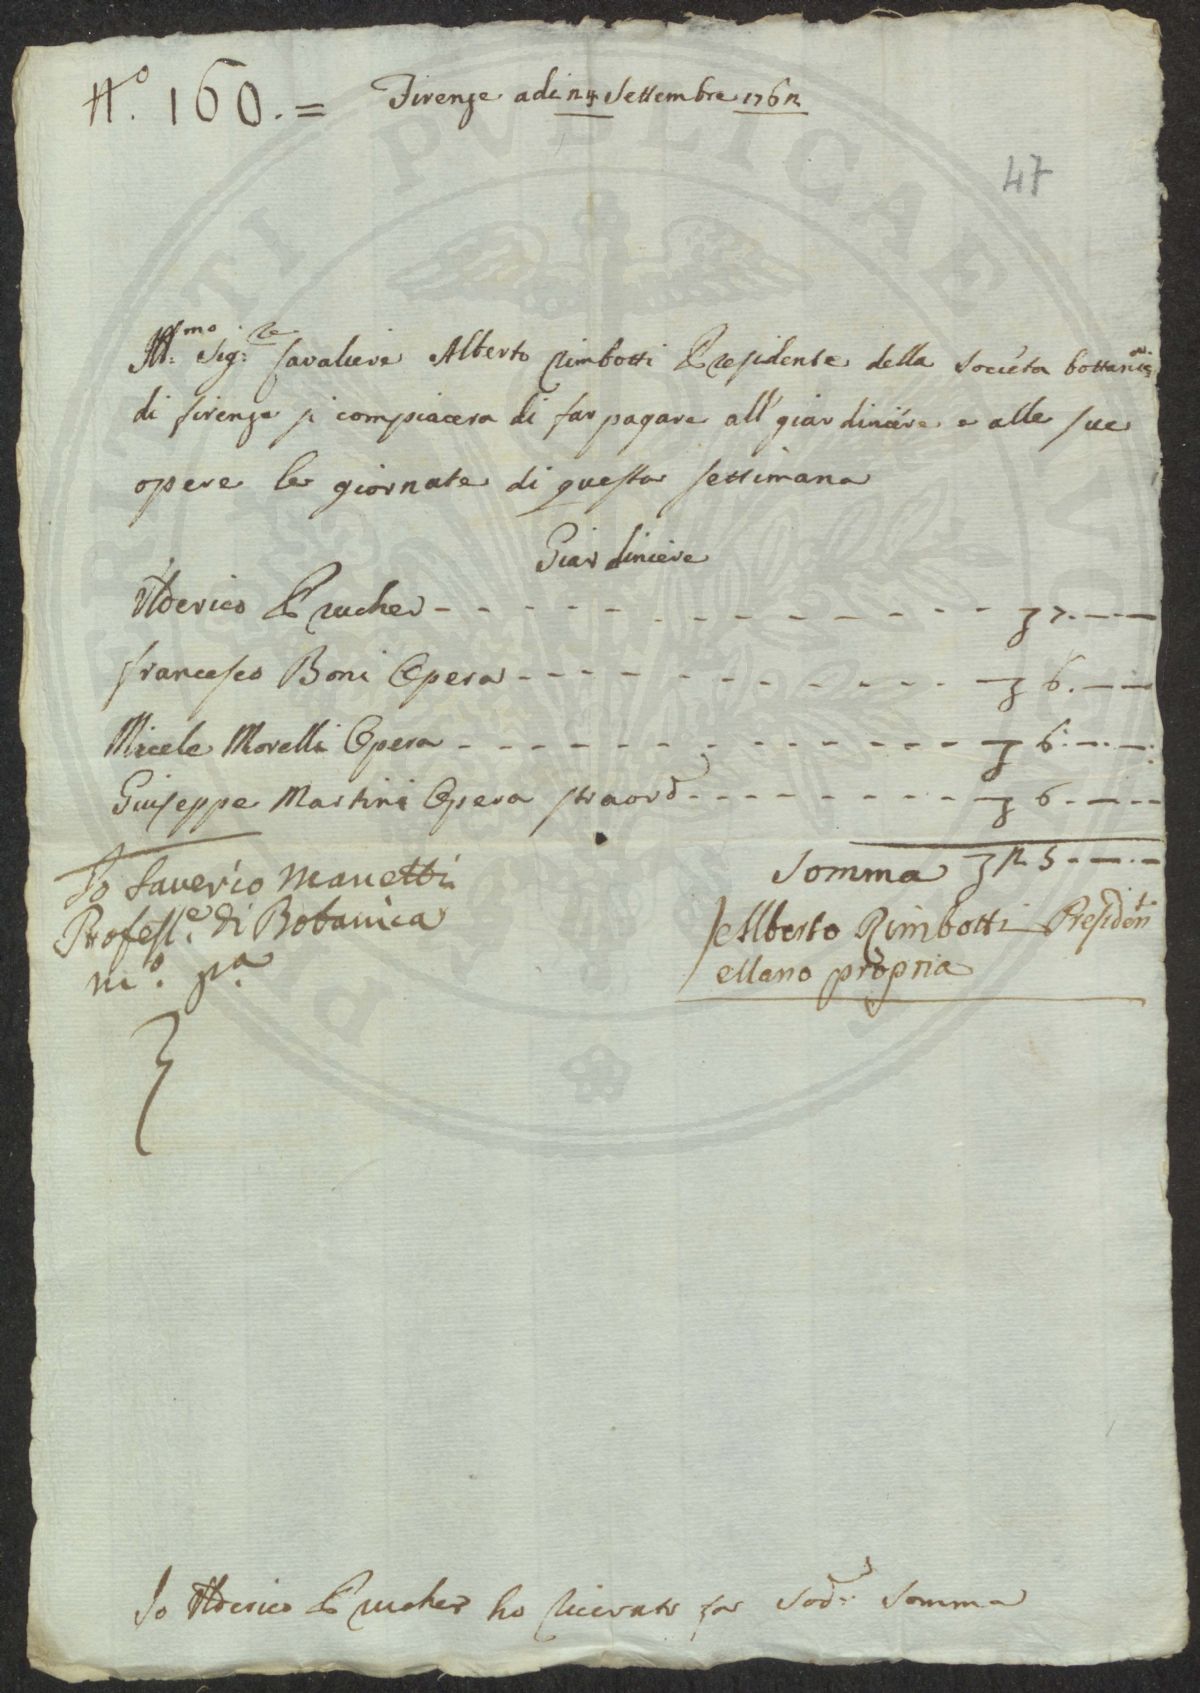 N.o 160. =
Firenze adi 24 Settembre 1762
47
Ill:mo Sig:re Cavaliere Alberto Rimbotti Presidente della Societa bottanica
di firenze si compiacera di far pagare all giardiniere e alle sue
opere le giornate di questa settimana
Giardiniere
Ulderico Prucher - - - - - - - - - - - - £ 7. - -
francesco Boni Opera - - - - - - - - - - - £ 6. - -
Micele Morelli Opera - - - - - - - - - - - £ 6. - -
Giuseppe Martini Opera straord - - - - - - - - £ 6. - -
Somma £ 25 - - -
Io Saverio Manetti
Profess.e di Botanica
m.o p.a
Alberto Rimbotti Presiden
Mano propria
Io Ulderico Prucher ho ricevuto la Sod:a Somma